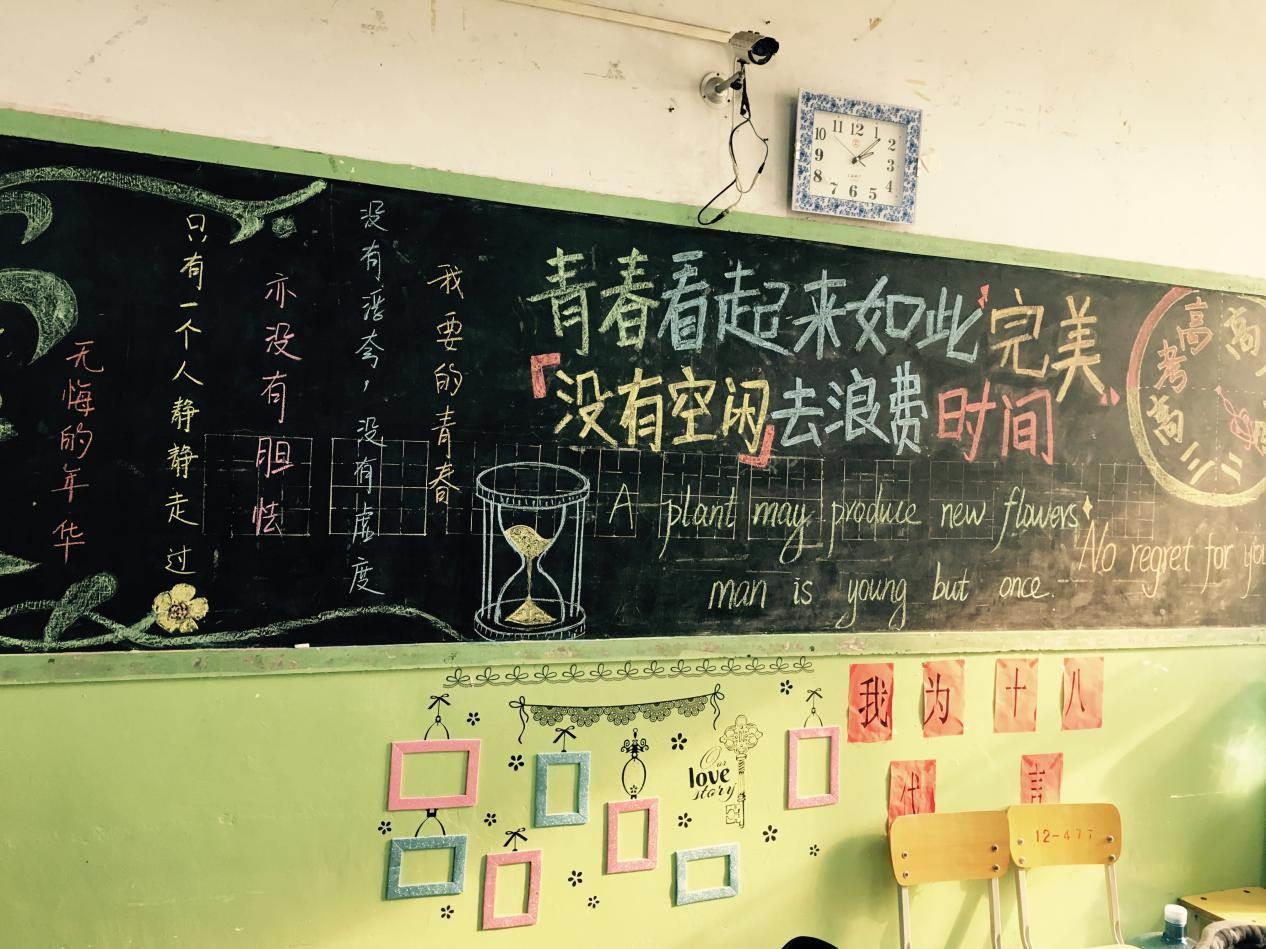 青春看起来如此完美
『没有空闲』去浪费时间
A plant may produce new flowers
man is young but once.
No regret for
我要的青春
没有浮夸，没有虚度
亦没有胆怯
只有一个人静静走过
无悔的年华
高考
高三
我为十八
代言
Our
love
story
12 1 2 3 4 5 6 7 8 9 10 11